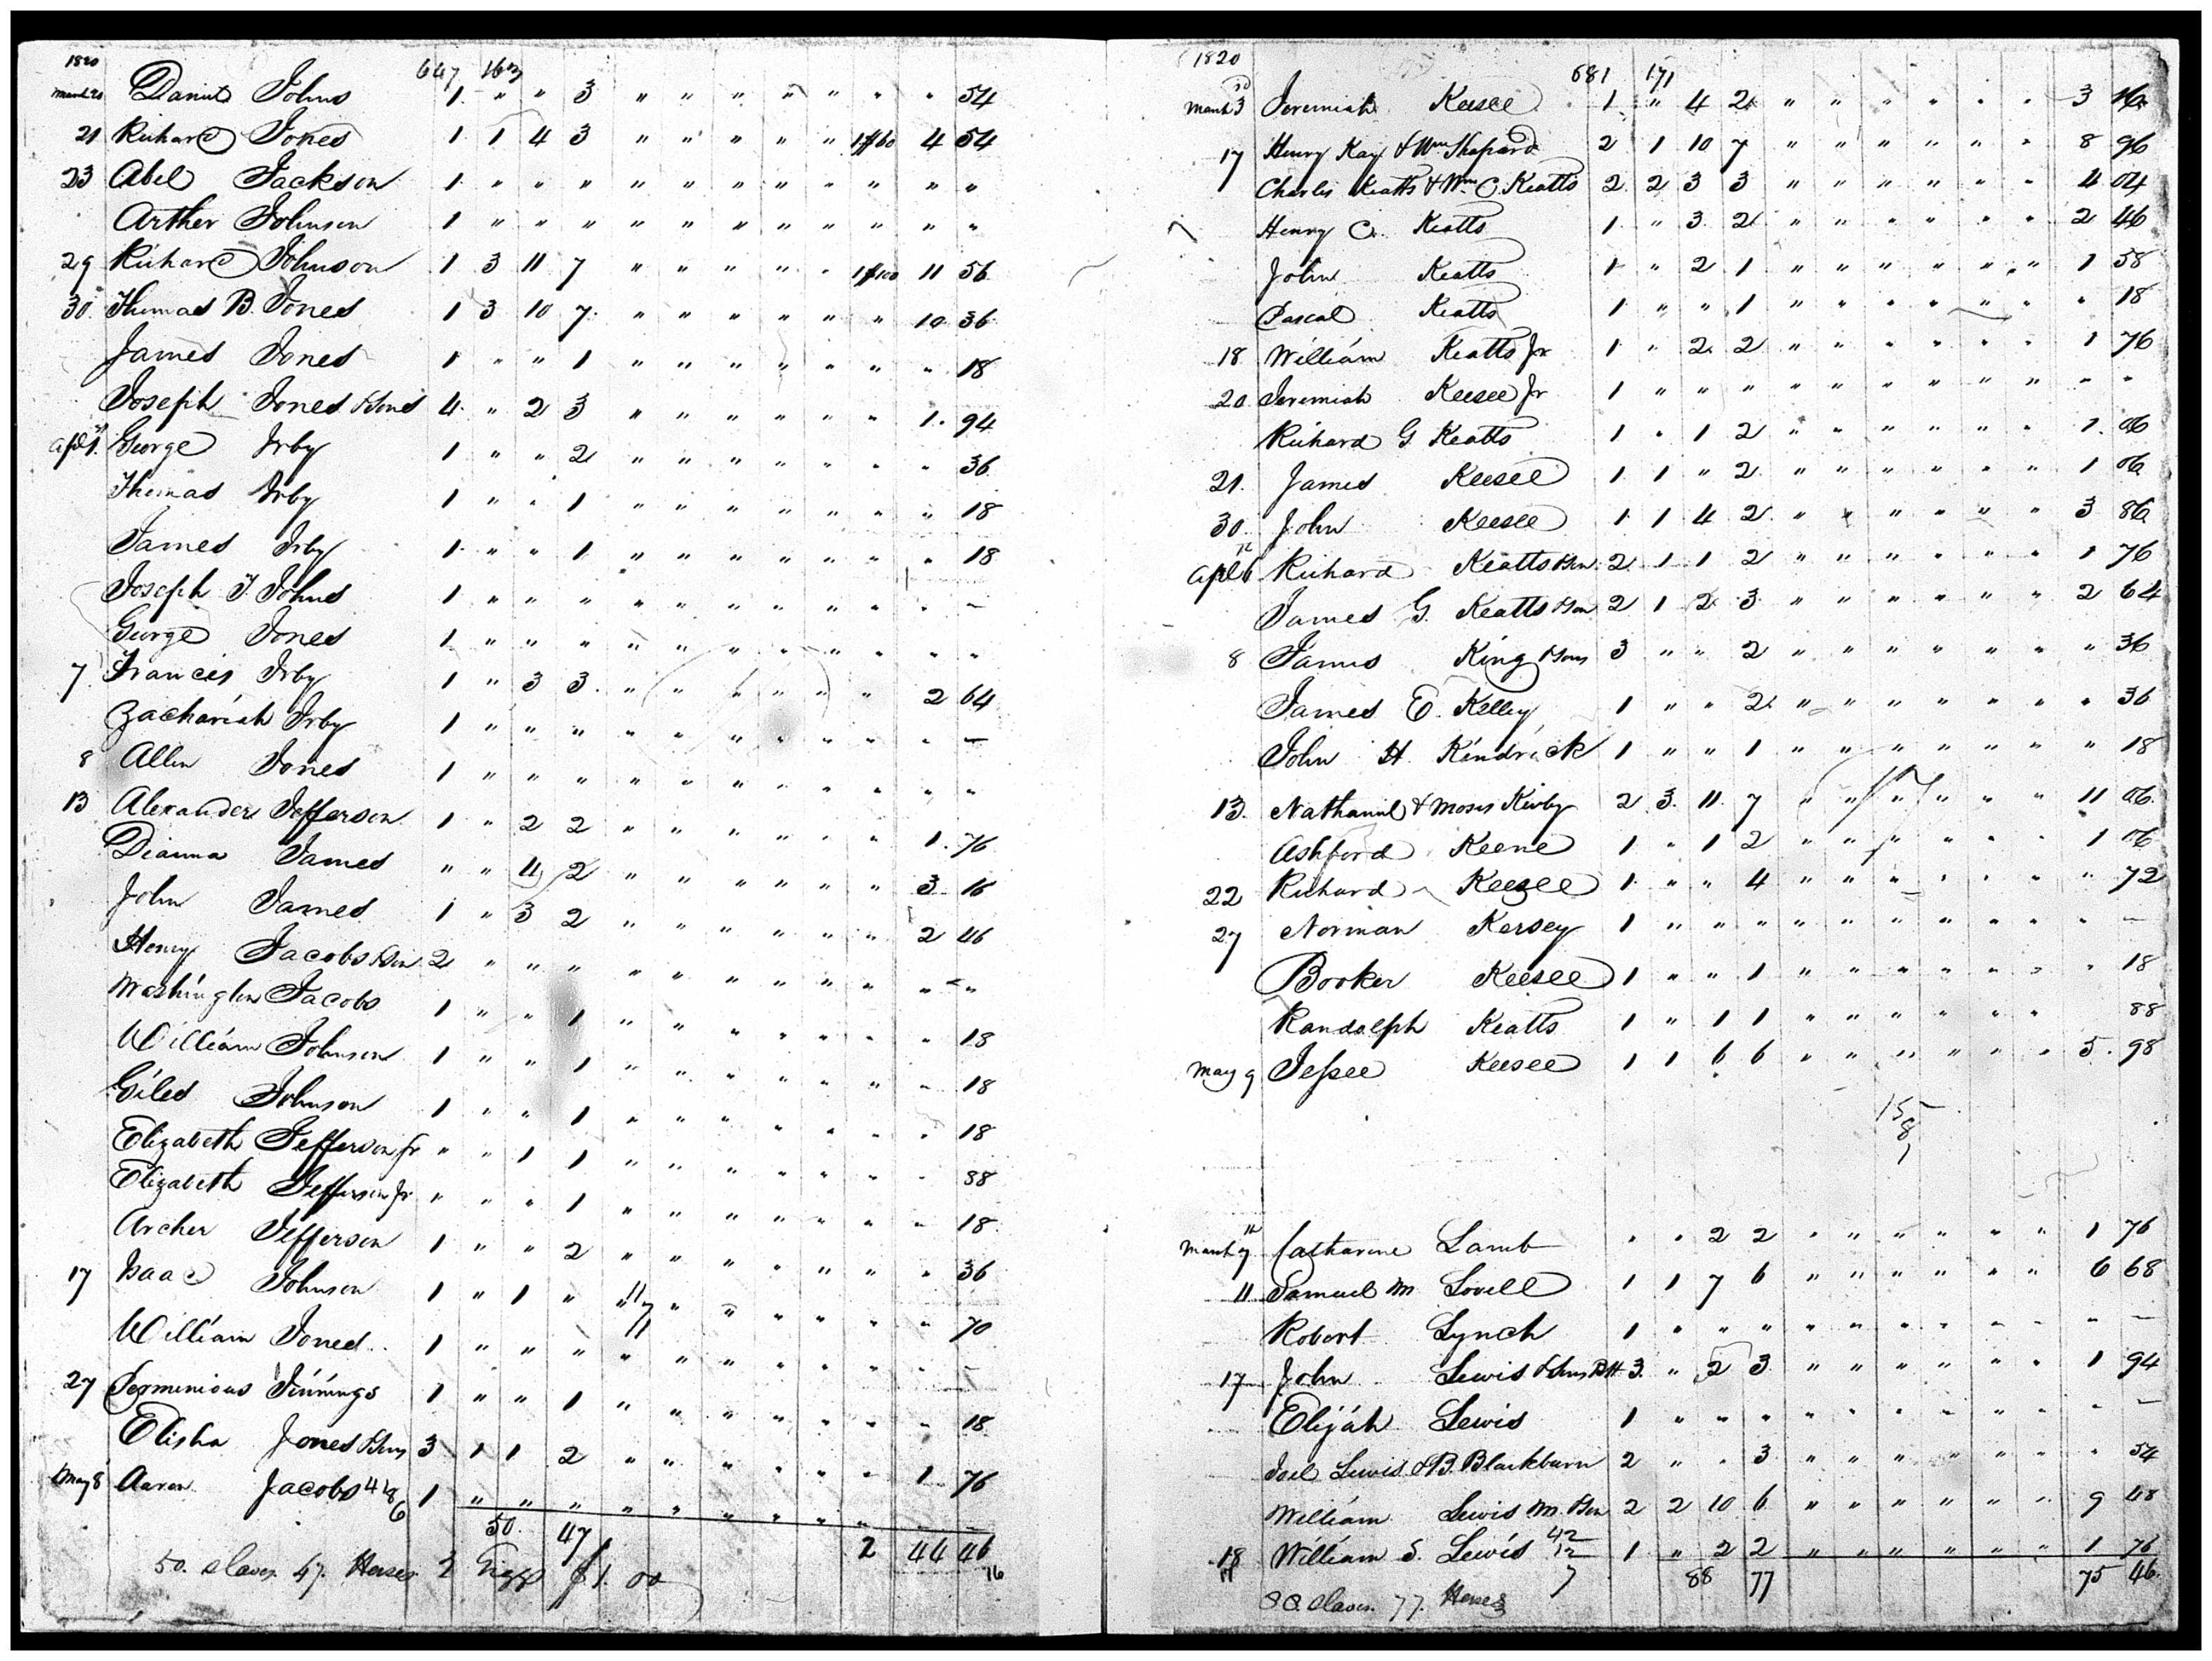 1820 647 163
March 20 Daniel Johns 1 " " 3 " " " " " " " 54
21 Richard Jones 1 1 4 3 " " " " " 1 $60 4 54
23 Abel Jackson 1 " " " " " " " " " " "
Arther Johnson 1 " " " " " " " " " " "
29 Richard Johnson 1 3 11 7 " " " " " 1 $100 11 56
30 Thomas B. Jones 1 3 10 7 " " " " " " 10 36
James Jones 1 " " 1 " " " " " " " 18
Joseph Jones & Sons 4 " 2 3 " " " " " " 1. 94
Apl 1st George Irby 1 " " 2 " " " " " " " 36
Thomas Irby 1 " " 1 " " " " " " " 18
James Irby 1 " " 1 " " " " " " " 18
Joseph T. Johns 1 " " " " " " " " " " –
George Jones 1 " " " " " " " " " " "
7 Francis Irby 1 " 3 3 " " " " " " 2 64
Zachariah Irby 1 " " " " " " " " " " –
8 Allen Jones 1 " " " " " " " " " " "
13 Alexander Jefferson 1 " 2 2 " " " " " " 1. 76
Dianna James " " 4 2 " " " " " " 3 16
John James 1 " 3 2 " " " " " " 2 46
Henry Jacobs & Son 2 " " " " " " " " " " "
Washington Jacobs 1 " " 1 " " " " " " " 18
William Johnson 1 " " 1 " " " " " " " 18
Giles Johnson 1 " " 1 " " " " " " " 18
Elizabeth Jefferson Sr " " 1 1 " " " " " " " 88
Elizabeth Jefferson Jr " " " 1 " " " " " " " 18
Archer Jefferson 1 " " 2 " " " " " " " 36
17 Isaac Johnson 1 " 1 " " " " " " " " 70
William Jones 1 " " " " " " " " " " –
27 Jinnings 1 " " 1 " " " " " " " 18
Elisha Jones & Sons 3 1 1 2 " " " " " " 1 76
May 8 Aaron Jacobs 1 " " " " " " " " " " –
50 47 2 44 46
50. Slaves 47. Horses 2 Giggs $1.00 16
1820 681 171
March 3rd Jeremiah Keesee 1 " 4 2 " " " " " " 3 16
17 Henry Kay & Wm Shepard 2 1 10 7 " " " " " " 8 96
Charles Keatts & Wm C. Keatts 2 2 3 3 " " " " " " 4 04
Henry C. Keatts 1 " 3 2 " " " " " " 2 46
John Keatts 1 " 2 1 " " " " " " 1 58
Pascal Keatts 1 " " 1 " " " " " " " 18
18 William Keatts Jr 1 " 2 2 " " " " " " 1 76
20 Jeremiah Keesee Jr 1 " " " " " " " " " " "
Richard G. Keatts 1 " 1 2 " " " " " " 1. 06
21. James Keesee 1 1 " 2 " " " " " " 1 06
30 John Keesee 1 1 4 2 " " " " " " 3 86
Apl 6th Richard Keatts & Son 2 1 1 2 " " " " " " 1 76
James G. Keatts & Son 2 1 2 3 " " " " " " 2 64
8 James King & Sons 3 " " 2 " " " " " " " 36
James E. Kelley 1 " " 2 " " " " " " " 36
John H. Kindrick 1 " " 1 " " " " " " " 18
13. Nathaniel & Moses Kirby 2 3 11 7 " " " " " " 11 06
Ashford Keene 1 " 1 2 " " " " " " 1 06
22 Richard Keesee 1 " " 4 " " " " " " " 72
27 Norman Kersey 1 " " " " " " " " " " –
Booker Keesee 1 " " 1 " " " " " " " 18
Randolph Keatts 1 " 1 1 " " " " " " 88
May 9 Jessee Keesee 1 1 6 6 " " " " " " 5. 98
15
8
1
March 7th Catharine Lamb " " 2 2 " " " " " " 1 76
11 Samuel M Lovell 1 1 7 6 " " " " " " 6 68
Robert Lynch 1 " " " " " " " " " " –
17 John Lewis & Sons 3 " 2 3 " " " " " " 1 94
Elijah Lewis 1 " " " " " " " " " " –
Joel Lewis & B. Blackburn 2 " " 3 " " " " " " " 54
William Lewis M. & Son 2 2 10 6 " " " " " " 9 48
18 William S. Lewis 1 " 2 2 " " " " " " 1 76
88 77 75 46
88 Slaves 77. Horses